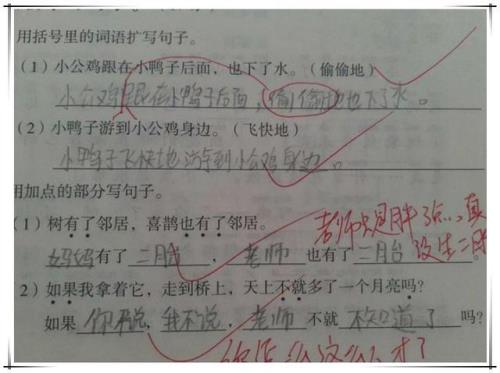 用括号里的词语扩写句子。
(1)小公鸡跟在小鸭子后面,也下了水。(偷偷地)
小公鸡跟在小鸭子后面,偷偷地也下了水。
(2)小鸭子游到小公鸡身边。(飞快地)
小鸭子飞快地游到小公鸡身边。
用加点的部分写句子。
(1)树有了邻居,喜鹊也有了邻居。
老师只是胖了点...真
妈妈有了二胎,老师也有了二月台
没生二胎
2)如果我拿着它,走到桥上,天上不就多了一个月亮吗?
如果你不说,我不说,老师不就不知道了吗?
你怎么这么有才了